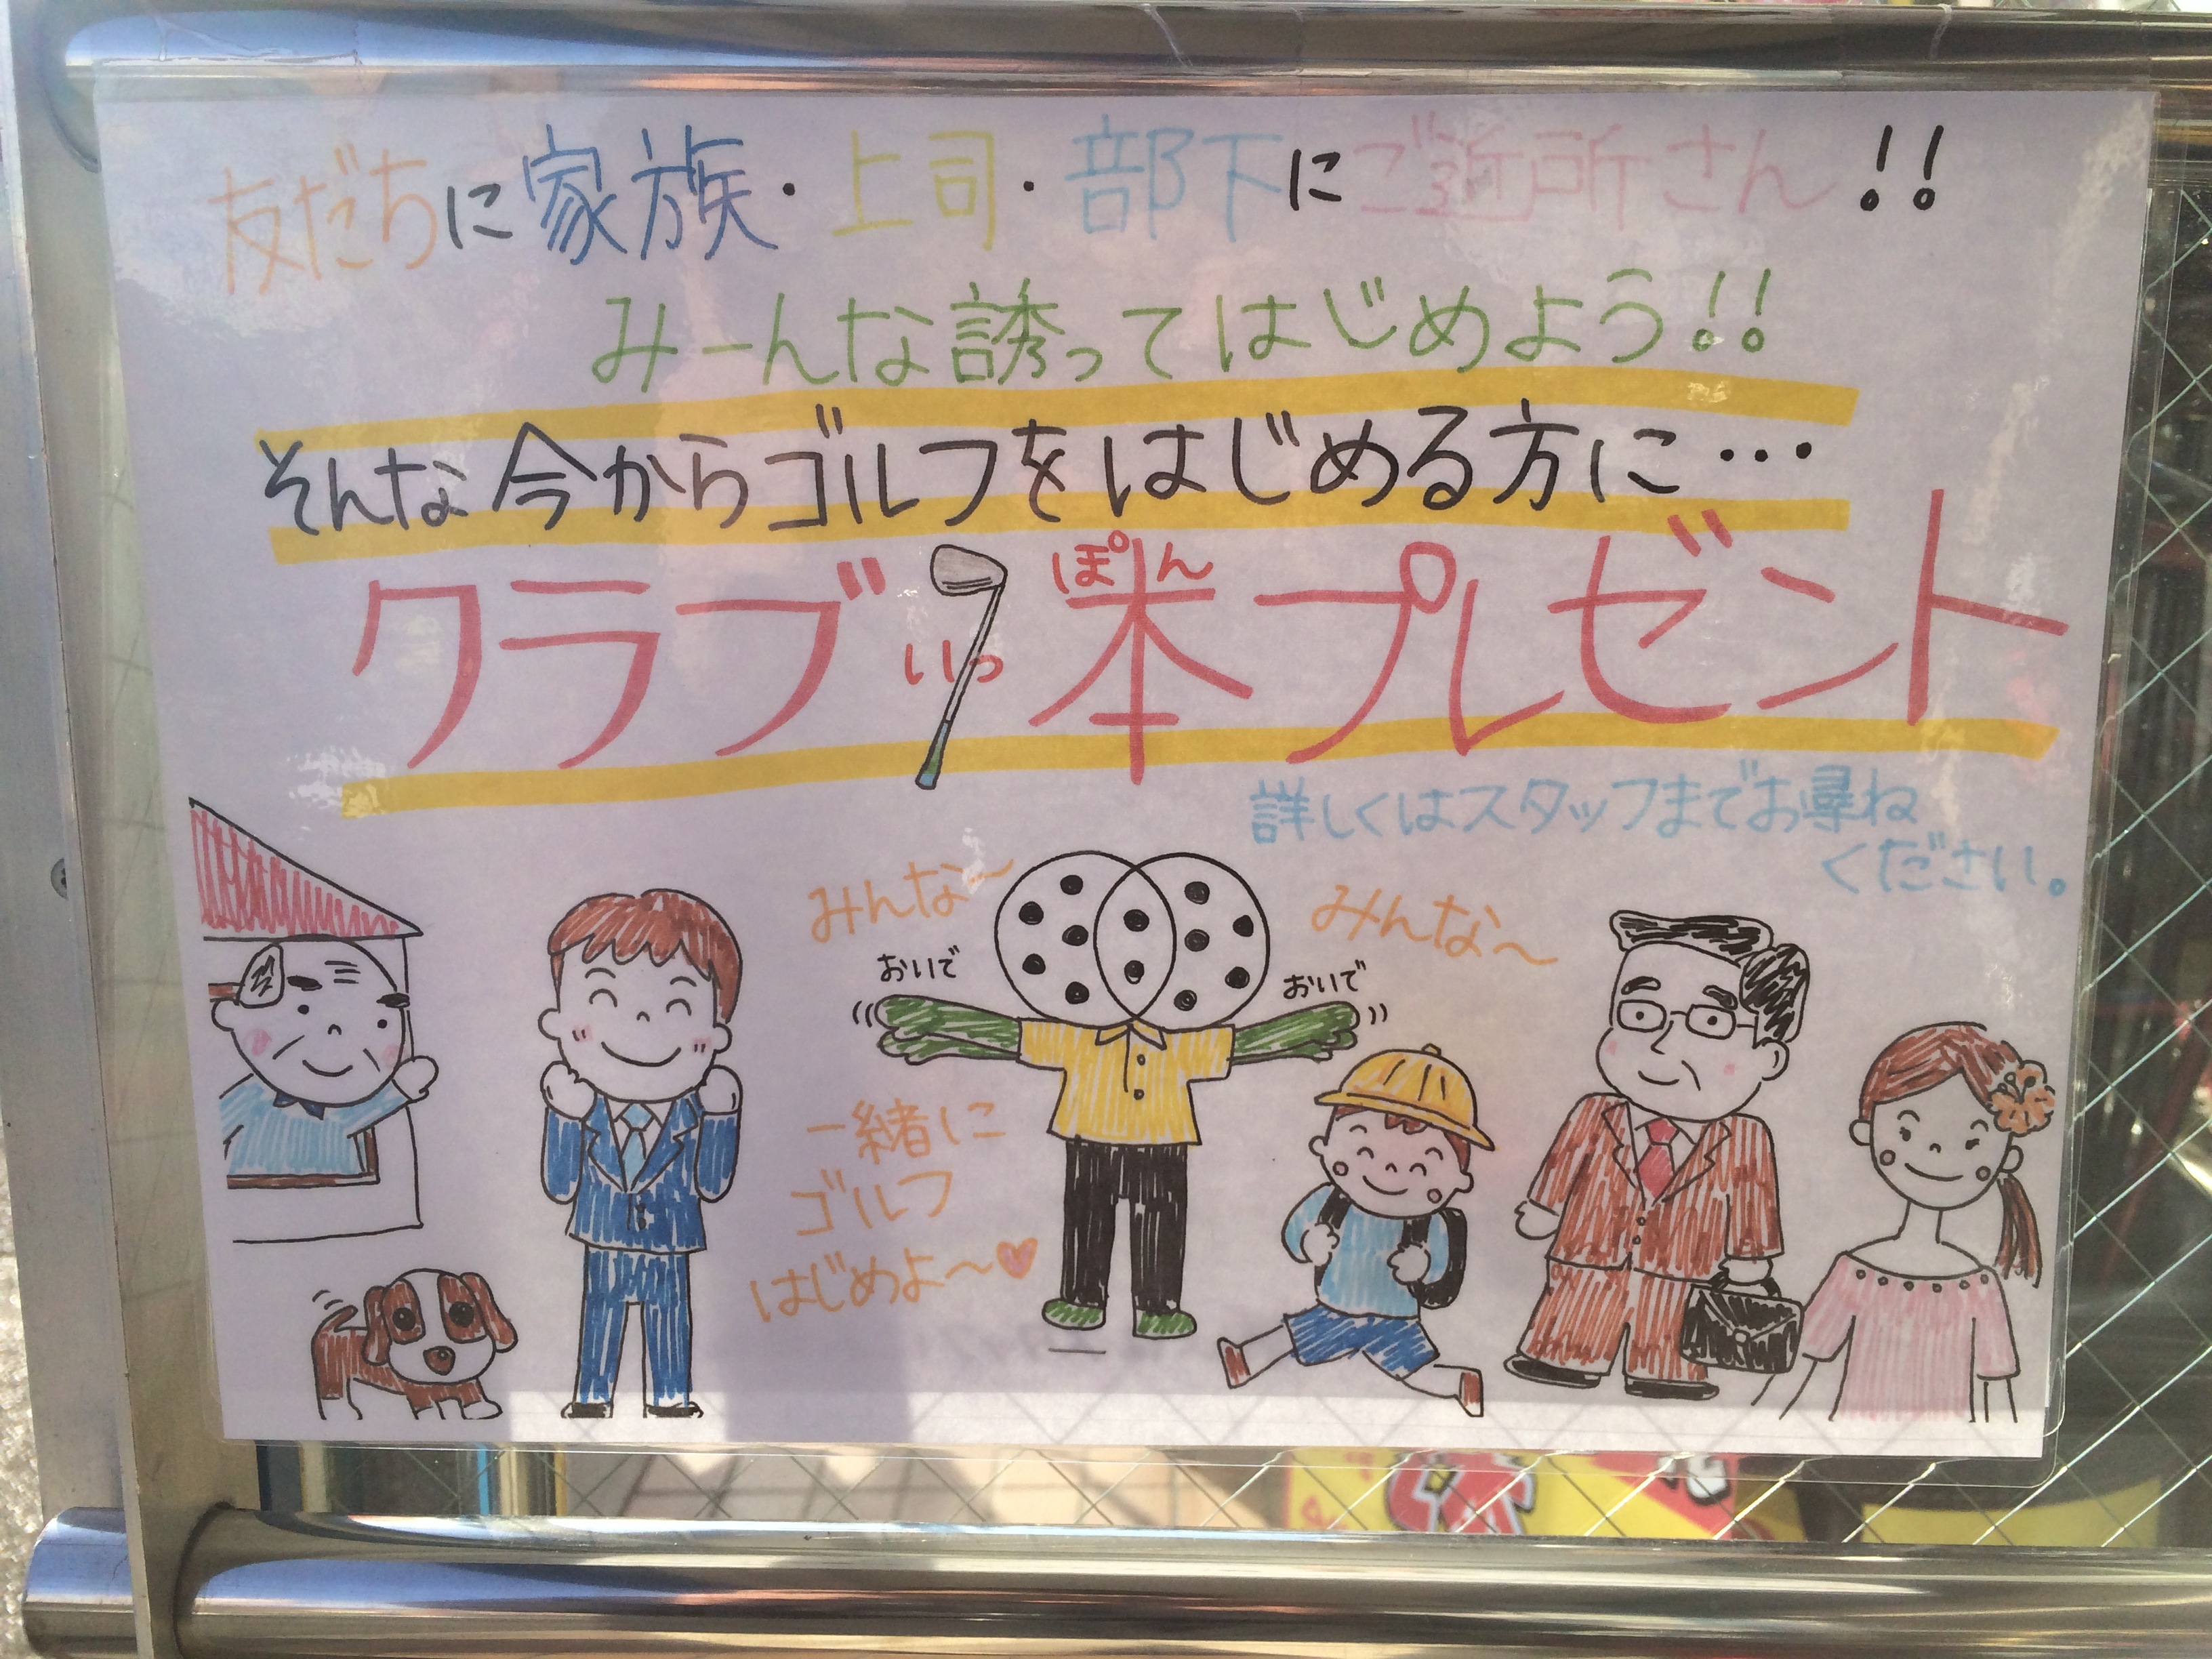 友だちに家族・上司・部下にご近所さん!!
みーんな誘ってはじめよう!!
そんな今からゴルフをはじめる方に…
クラブ 本プレゼント
いっ ぽん
詳しくはスタッフまでお尋ね
ください。
みんな〜
みんな〜
おいで
おいで
一緒に
ゴルフ
はじめよ〜♡